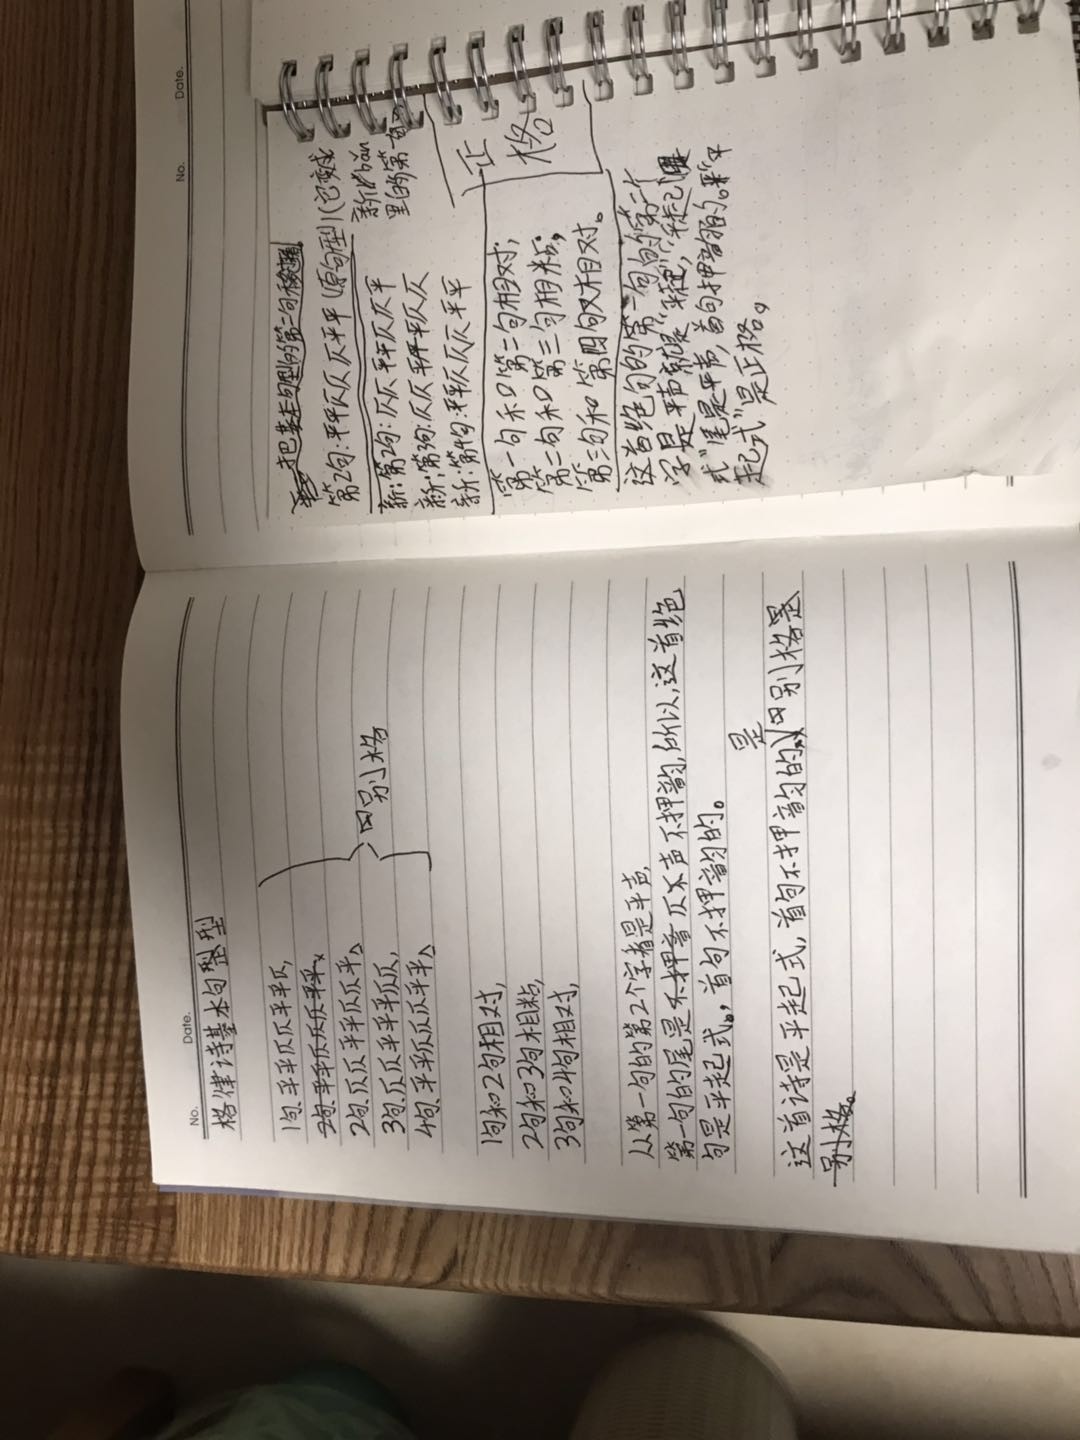 No.
Date.
格律诗基本句型
1句、平平仄仄平平仄,
2句、平平仄仄仄平平,
2句、仄仄平平仄仄平、
3句、仄仄平平平仄仄,
4句、平平仄仄仄平平、
四别格
1句和2句相对,
2句和3句相粘,
3句和4句相对,
从第一句的第2个字看是平声,
第一句的尾是不押音仄声不押韵,所以,这首绝
句是平起式。,首句不押韵的。
是
这首诗是平起式,首句不押韵的四别格是
别格。
No.
Date.
把基本句型的第二句
第2句:平平仄仄仄平平(原句型)(它变成
新bǎn
里的第一句)
新:第2句:仄仄平平仄仄平
新:第3句:仄仄平平平仄仄
新:第4句:平平仄仄仄平平
正
格
第一句和第二句相对;
第二句和第三句相粘;
第三句和第四句又相对。
这首绝句的第一句的第二个
字是平声就是“平起”,“平起
式”尾是平声,首句押韵的。“平
起式”是正格。